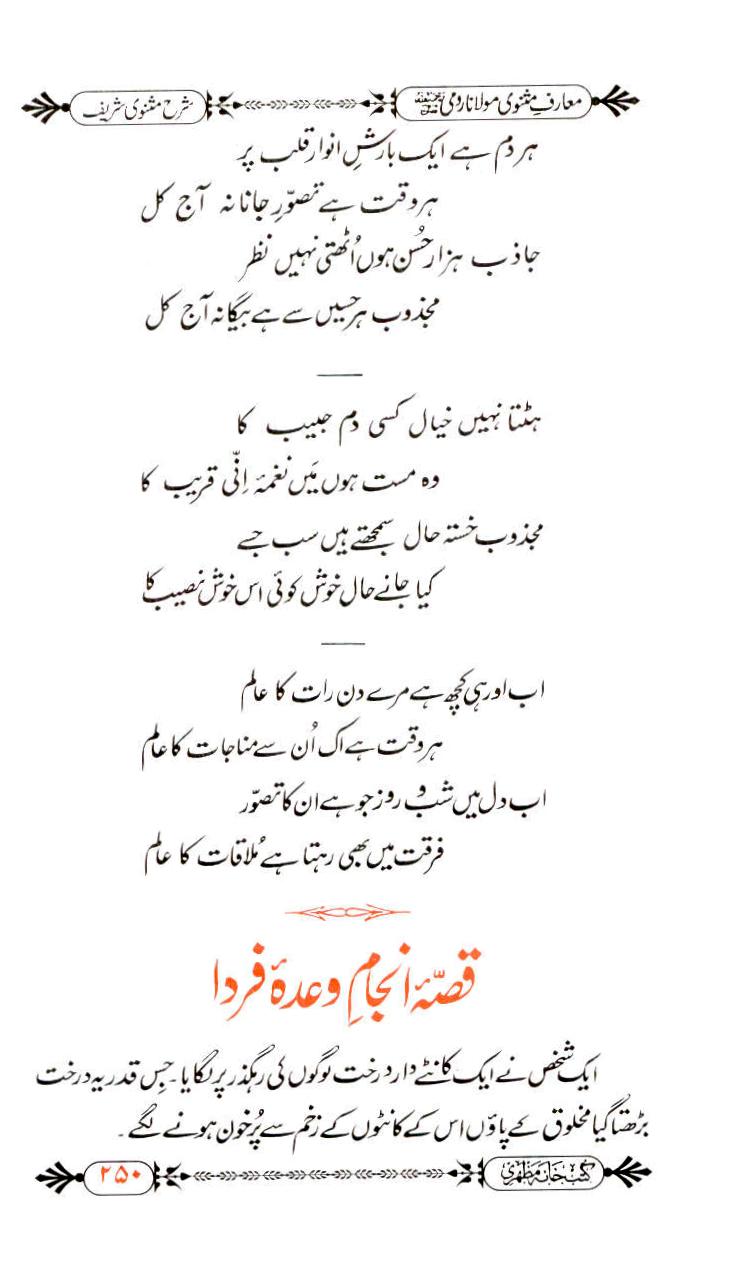 معارفِ مثنوی مولانا رومی رحمۃ اللہ علیہ
شرح مثنوی شریف
ہر دم ہے ایک بارشِ انوار قلب پر
ہر وقت ہے تصوّرِ جانانہ آج کل
جاذب ہزار حُسن ہوں اُٹھتی نہیں نظر
مجذوب ہر حسیں سے ہے بیگانہ آج کل
ہٹتا نہیں خیال کسی دم حبیب کا
وہ مست ہوں مَیں نغمۂ اِنِّی قریب کا
مجذوب خستہ حال سمجھتے ہیں سب جسے
کیا جانے حال خوش کوئی اس خوش نصیب کا
اب اور ہی کچھ ہے مرے دن رات کا عالم
ہر وقت ہے اک اُن سے مناجات کا عالم
اب دل میں شب و روز جو ہے ان کا تصوّر
فرقت میں بھی رہتا ہے مُلاقات کا عالم
قصّۂ انجامِ وعدۂ فردا
ایک شخص نے ایک کانٹے دار درخت لوگوں کی رہگذر پر لگایا۔ جِس قدر یہ درخت
بڑھتا گیا مخلوق کے پاؤں اس کے کانٹوں کے زخم سے پُرخون ہونے لگے۔
کتب خانہ مظہری
۲۵۰